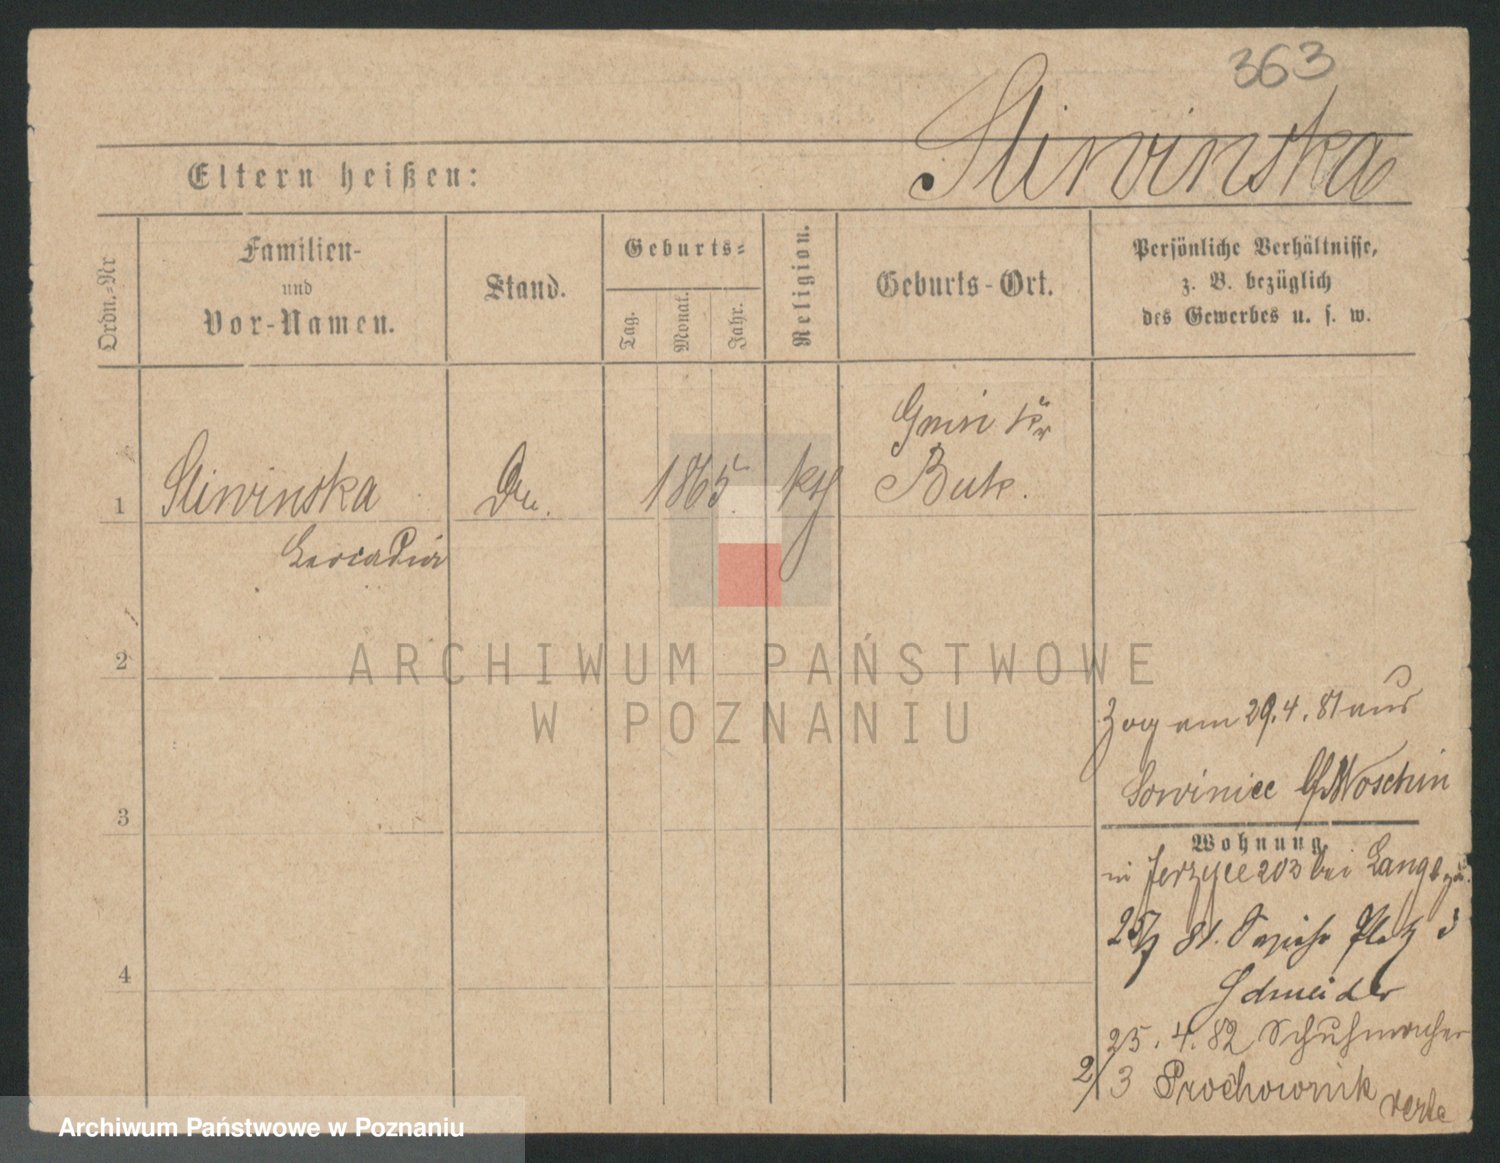 363
Sliwinska
Eltern heißen:
Ordn.-Nr
Familien-
und
Vor-Namen.
Stand.
Geburts-
Tag.
Monat.
Jahr.
Religion.
Geburts-Ort.
Persönliche Verhältnisse,
z. B. bezüglich
des Gewerbes u. s. w.
1 Sliwinska 1865 Kr
Buk.
2
ARCHIWUM PAŃSTWOWE
W POZNANIU
Zog am 29.4.81 aus
Sowiniec Moschin
3
Wohnung.
in Jerzyce 203 bei Lange
25/7 81. Sapieha Platz 3
Schneider
4
25.4.82 Schuhmacher
2/3 Prochownik
Archiwum Państwowe w Poznaniu